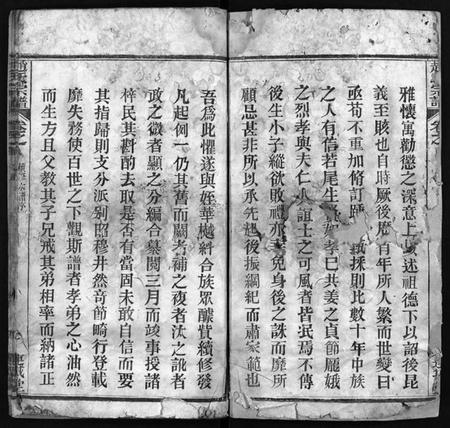 雅懷寓勸懲之深意上以述祖德下以詔後昆
義至賅也自時厥後歷有年所人繁而世變曰
亟苟不重加脩訂廣採則比數十年中族
之人有信若尾生孝巳共姜之貞節龐娥
之烈孝與夫仁人誼士之可風者皆泯焉不傳
後生小子縱欲敗禮亦免身後之誅而靡所
顧忌甚非所以承先起後振綱紀而肅家範也
吾為此懼遂與姪華樾糾合族眾釀貲續修發
凡起例一仍其舊而關者補之複者汰之訛者
政之微者顯之分綱合纂閱三月而竣事授諸
梓民其斟酌去取是否有當固未敢自信而要
其指歸則支分派別昭穆井然奇節畸行登載
靡失務使百世之下觀斯譜者孝弟之心油然
而生方且父教其子兄戒其弟相率而納諸正